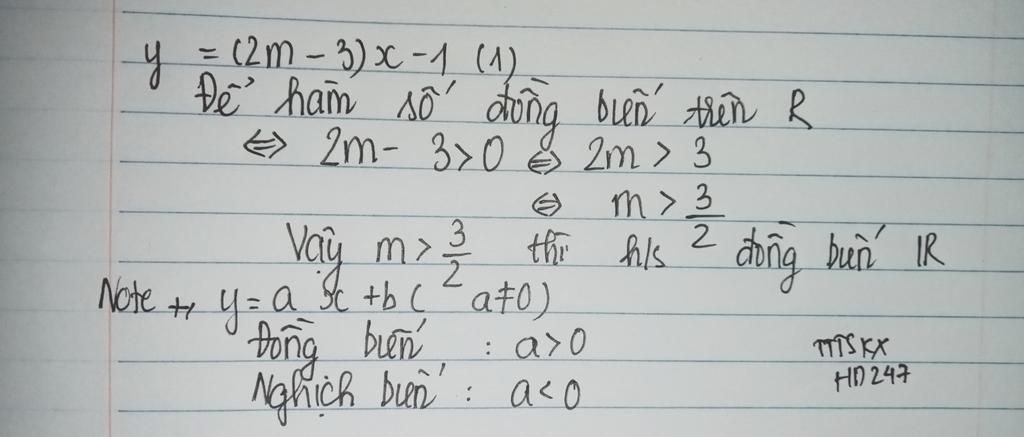 y = (2m - 3)x - 1 (1)
Để hàm số đồng biến trên R
⇔ 2m - 3 > 0 ⇔ 2m > 3
⇔ m > 3/2
Vậy m > 3/2 thì h/s đồng biến ℝ
Note +, y = ax + b ( a ≠ 0)
Đồng biến : a > 0
Nghịch biến : a < 0
HD247